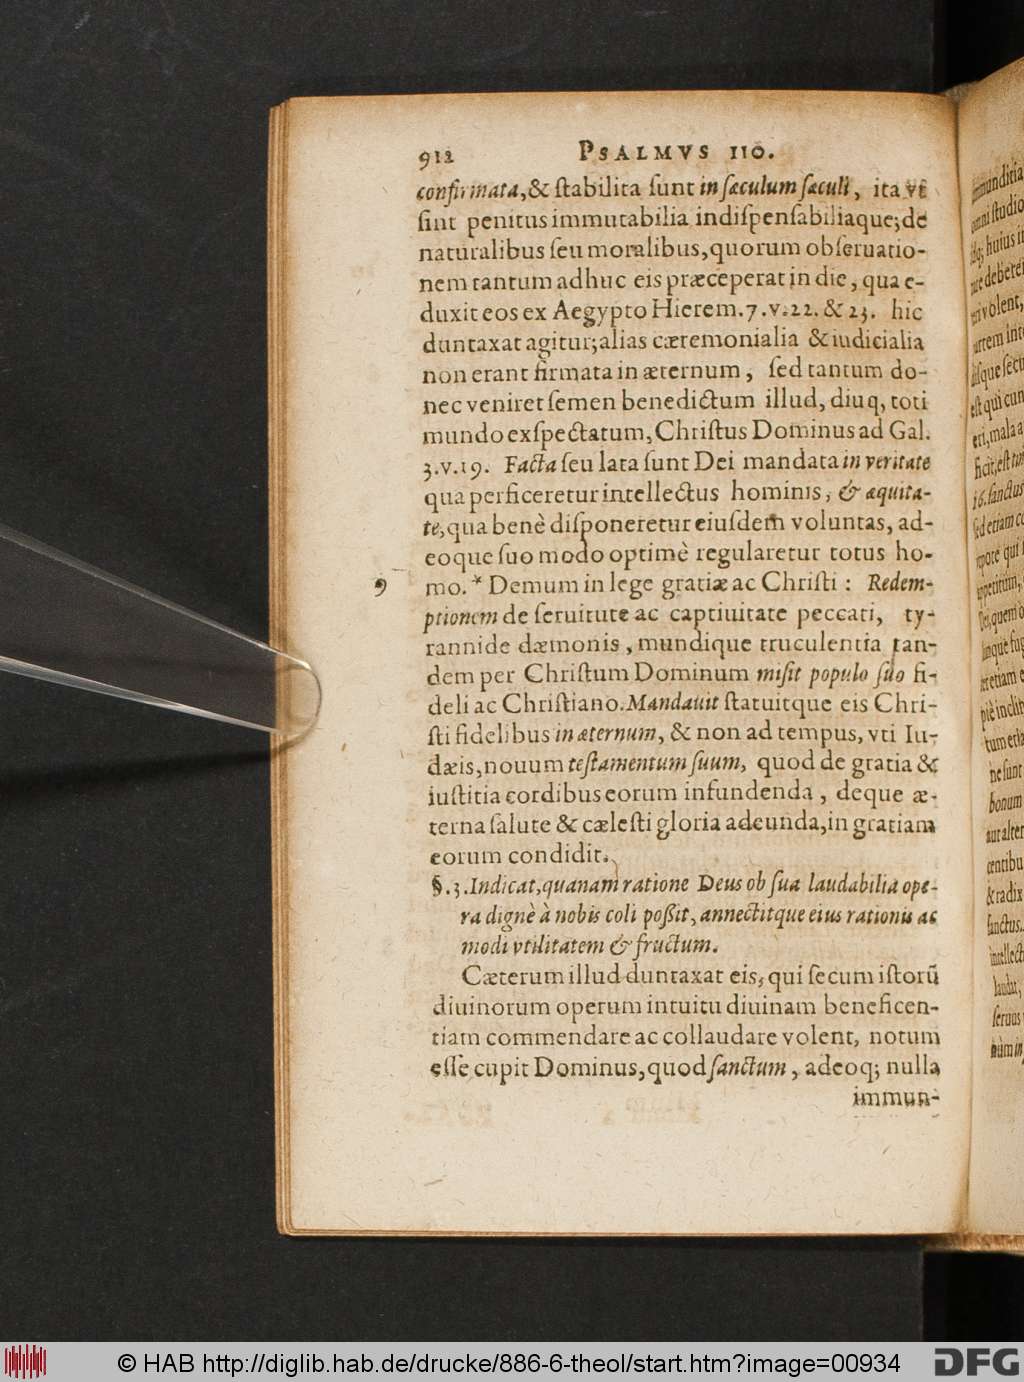 912 PSALMVS 110.
confirmata, & ſtabilita ſunt in ſæculum ſæculi, ita vt
ſint penitus immutabilia indiſpenſabiliaque; de
naturalibus ſeu moralibus, quorum obſeruatio-
nem tantum adhuc eis præceperat in die, qua e-
duxit eos ex Aegypto Hierem. 7. v. 22. & 23. hic
duntaxat agitur; alias cæremonialia & iudicialia
non erant firmata in æternum, ſed tantum do-
nec veniret ſemen benedictum illud, diuq, toti
mundo exſpectatum, Chriſtus Dominus ad Gal.
3. v. 19. Facta ſeu lata ſunt Dei mandata in veritate
qua perficeretur intellectus hominis, & æquita-
te, qua benè diſponeretur eiuſdem voluntas, ad-
eoque ſuo modo optimè regularetur totus ho-
9 mo. * Demum in lege gratiæ ac Chriſti: Redem-
ptionem de ſeruitute ac captiuitate peccati, ty-
rannide dæmonis, mundique truculentia tan-
dem per Chriſtum Dominum miſit populo ſuo fi-
deli ac Chriſtiano. Mandauit ſtatuitque eis Chri-
ſti fidelibus in æternum, & non ad tempus, vti Iu-
dæis, nouum teſtamentum ſuum, quod de gratia &
iuſtitia cordibus eorum infundenda, deque æ-
terna ſalute & cæleſti gloria adeunda, in gratiam
eorum condidit.
§. 3. Indicat, quanam ratione Deus ob ſua laudabilia ope-
ra dignè à nobis coli poſſit, annectitque eius rationis ac
modi vtilitatem & fructum.
Cæterum illud duntaxat eis, qui ſecum iſtorũ
diuinorum operum intuitu diuinam beneficen-
tiam commendare ac collaudare volent, notum
eſſe cupit Dominus, quod ſanctum, adeoq; nulla
immun-
© HAB http://diglib.hab.de/drucke/886-6-theol/start.htm?image=00934
DFG